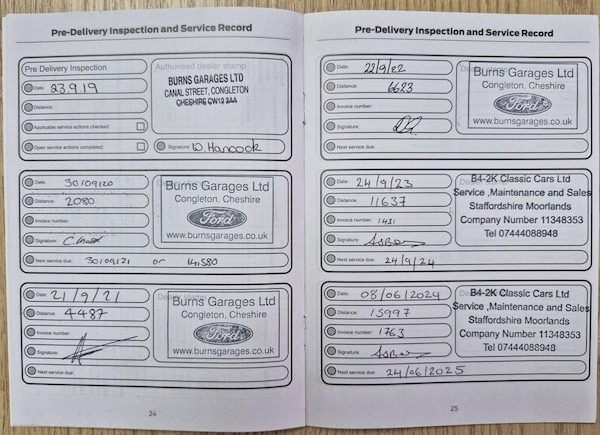 Pre-Delivery Inspection and Service Record
Pre Delivery Inspection
Authorised dealer stamp
Date: 23 9 19
Distance:
Applicable service actions checked:
Open service actions completed:
BURNS GARAGES LTD
CANAL STREET, CONGLETON
CHESHIRE CW12 3AA
Signature: W. Hancock
Date: 30/09/20
Distance: 2080
Invoice number:
Signature:
Next service due: 30/09/21 or 14,580
Burns Garages Ltd
Congleton, Cheshire
Ford
www.burnsgarages.co.uk
Date: 21/9/21
Distance: 4487
Invoice number:
Signature:
Next service due:
Burns Garages Ltd
Congleton, Cheshire
Ford
www.burnsgarages.co.uk
24
Pre-Delivery Inspection and Service Record
Date: 22/9/22
Distance: 6623
Invoice number:
Signature:
Next service due:
Burns Garages Ltd
Congleton, Cheshire
Ford
www.burnsgarages.co.uk
Date: 24/9/23
Distance: 11637
Invoice number: 1431
Signature:
Next service due: 24/9/24
B4-2K Classic Cars Ltd
Service ,Maintenance and Sales
Staffordshire Moorlands
Company Number 11348353
Tel 07444088948
Date: 08/06/2024
Distance: 15997
Invoice number: 1763
Signature:
Next service due: 24/06/2025
B4-2K Classic Cars Ltd
Service ,Maintenance and Sales
Staffordshire Moorlands
Company Number 11348353
Tel 07444088948
25